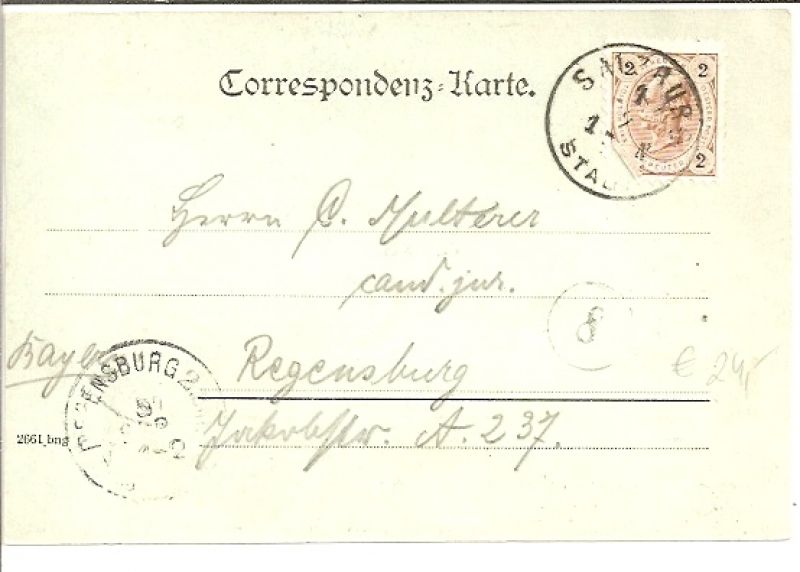 Correspondenz-Karte.
SALZBURG
STADT
2 2
2
Herrn C. Multerer
cand. jur.
8
Bayern
Regensburg
€ 24,-
REGENSBURG 2
Jakobstr. A. 237.
2661 bng